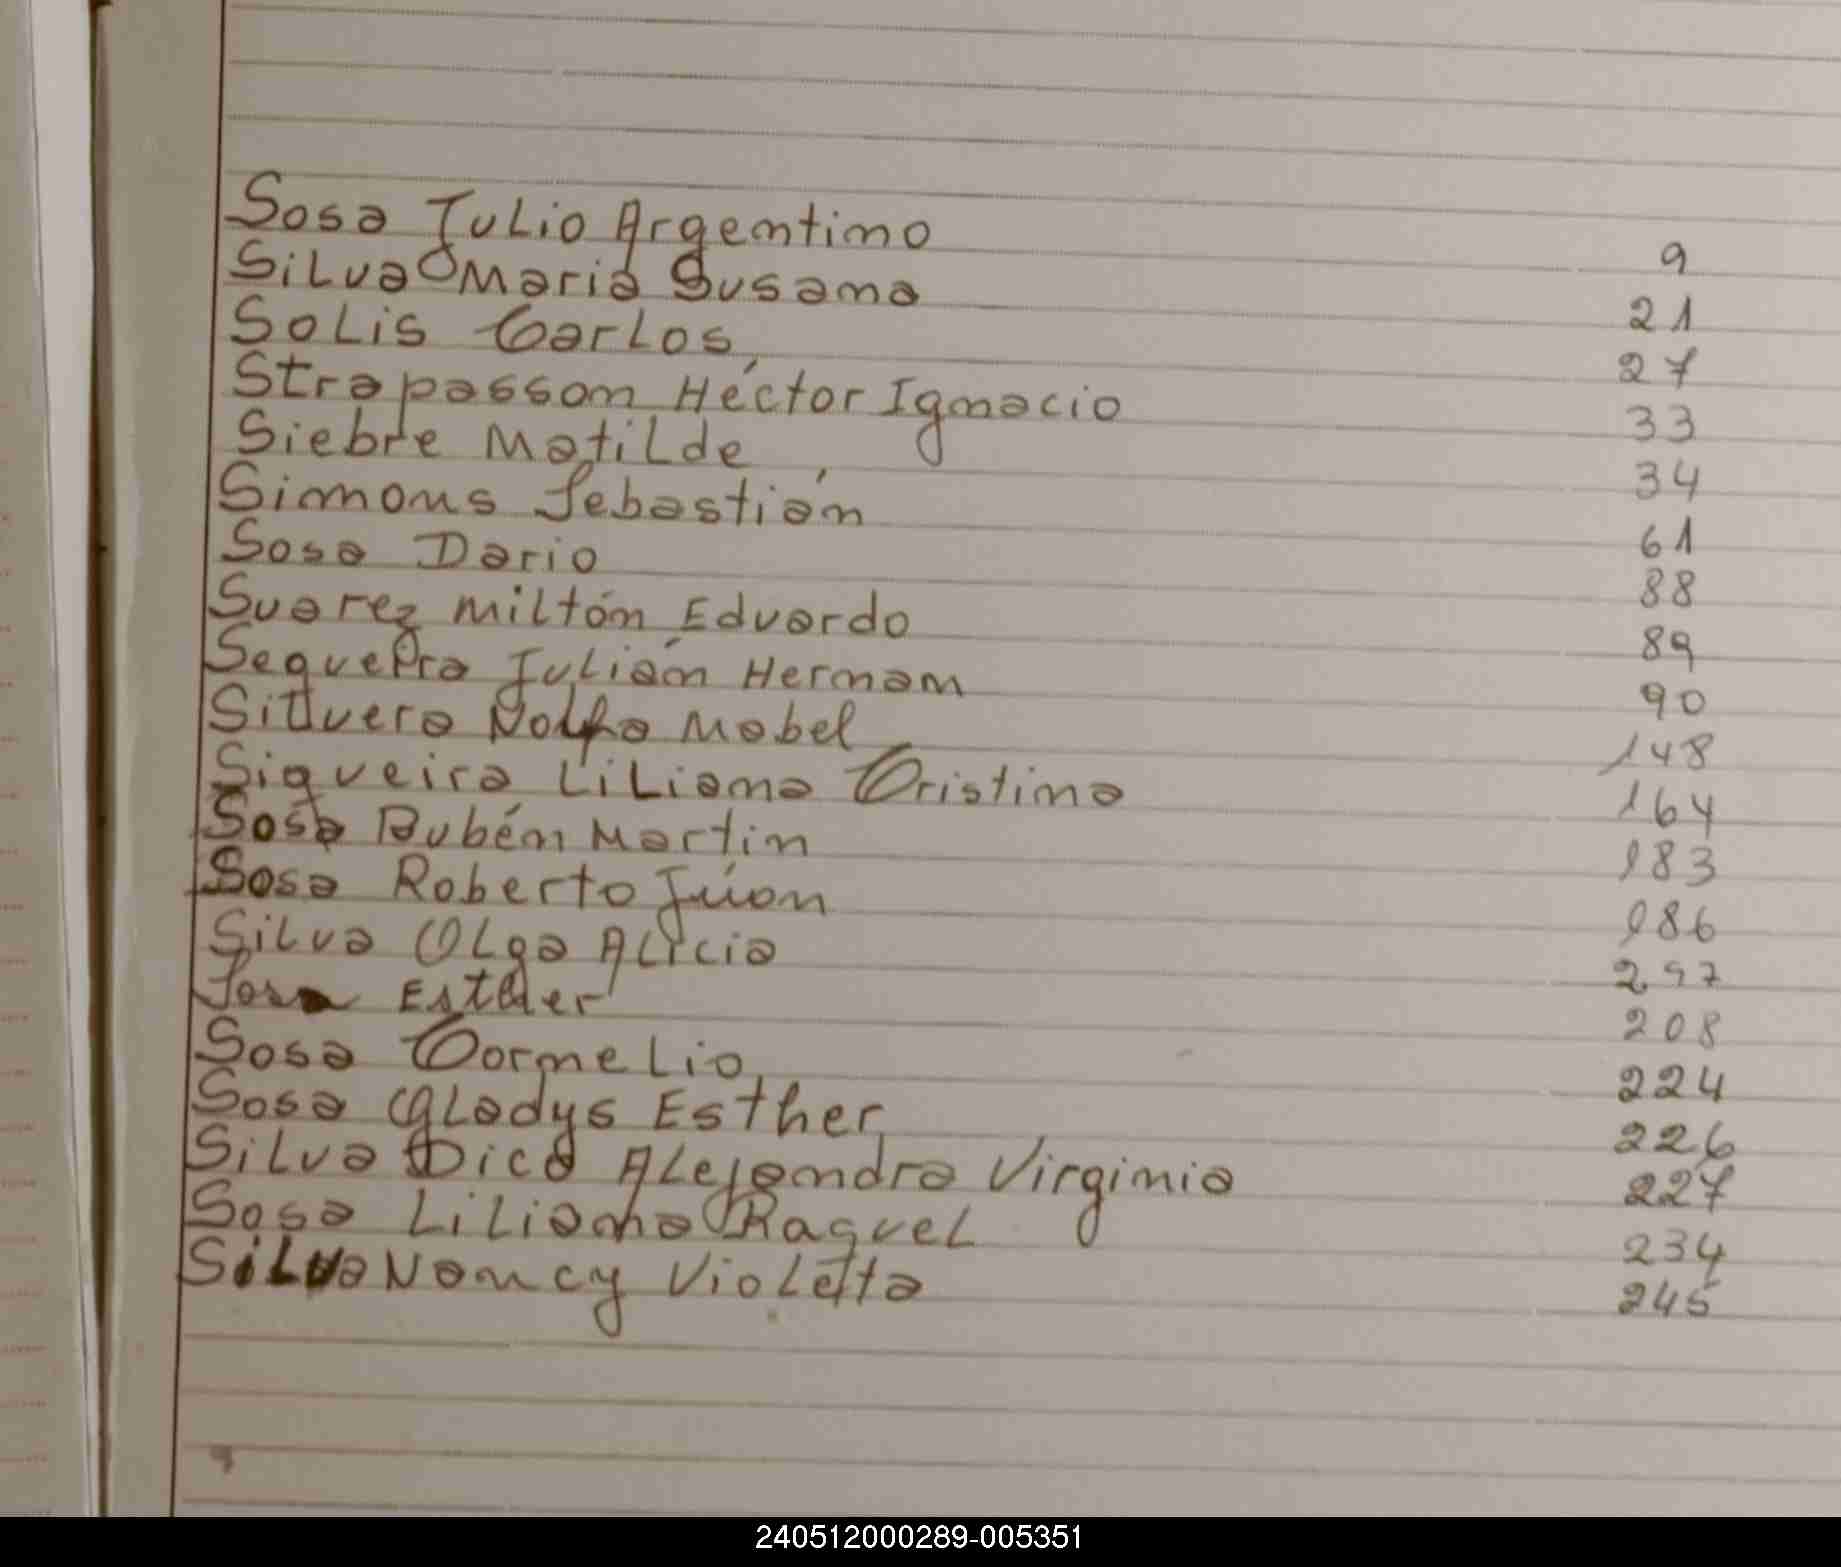 Sosa Julio Argentino 9
Silva Maria Susana 21
Solis Carlos 27
Strapasson Héctor Ignacio 33
Siebre Matilde 34
Simons Sebastián 61
Sosa Dario 88
Suarez Miltón Eduardo 89
Julián Hernan 90
Silvero Mabel 148
Siqueira Liliana Cristina 164
Sosa Rubén Martin 183
Sosa Roberto Juan 186
Silva Olga Alicia
Sosa Esther 208
Sosa Cornelio 224
Sosa Gladys Esther 226
Silva Dico Alejandra Virginia 227
Sosa Liliana Raquel 234
Silva Nancy Violetta 245
240512000289-005351